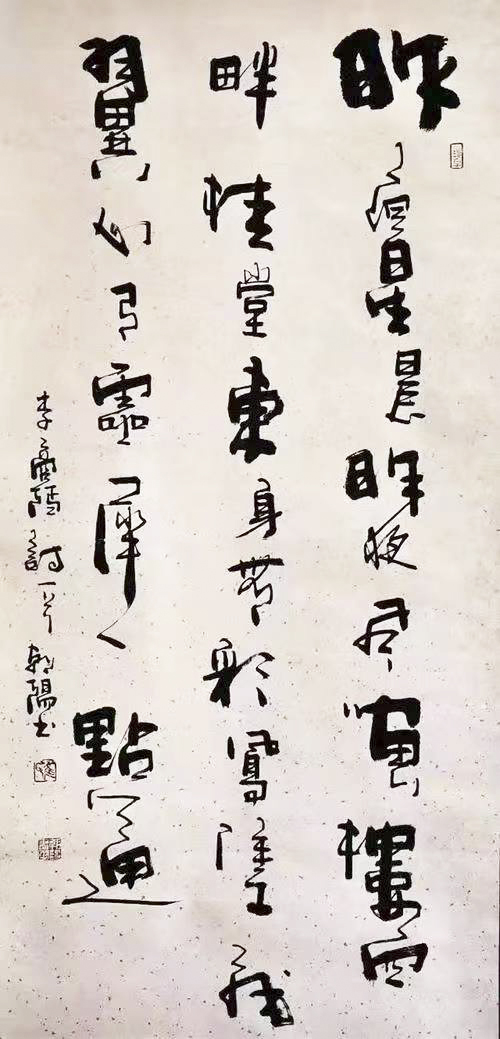 昨夜星辰昨夜風畫樓西
畔桂堂東身無彩鳳雙飛
翼心有靈犀一點通
李商隱詩一首 陽書